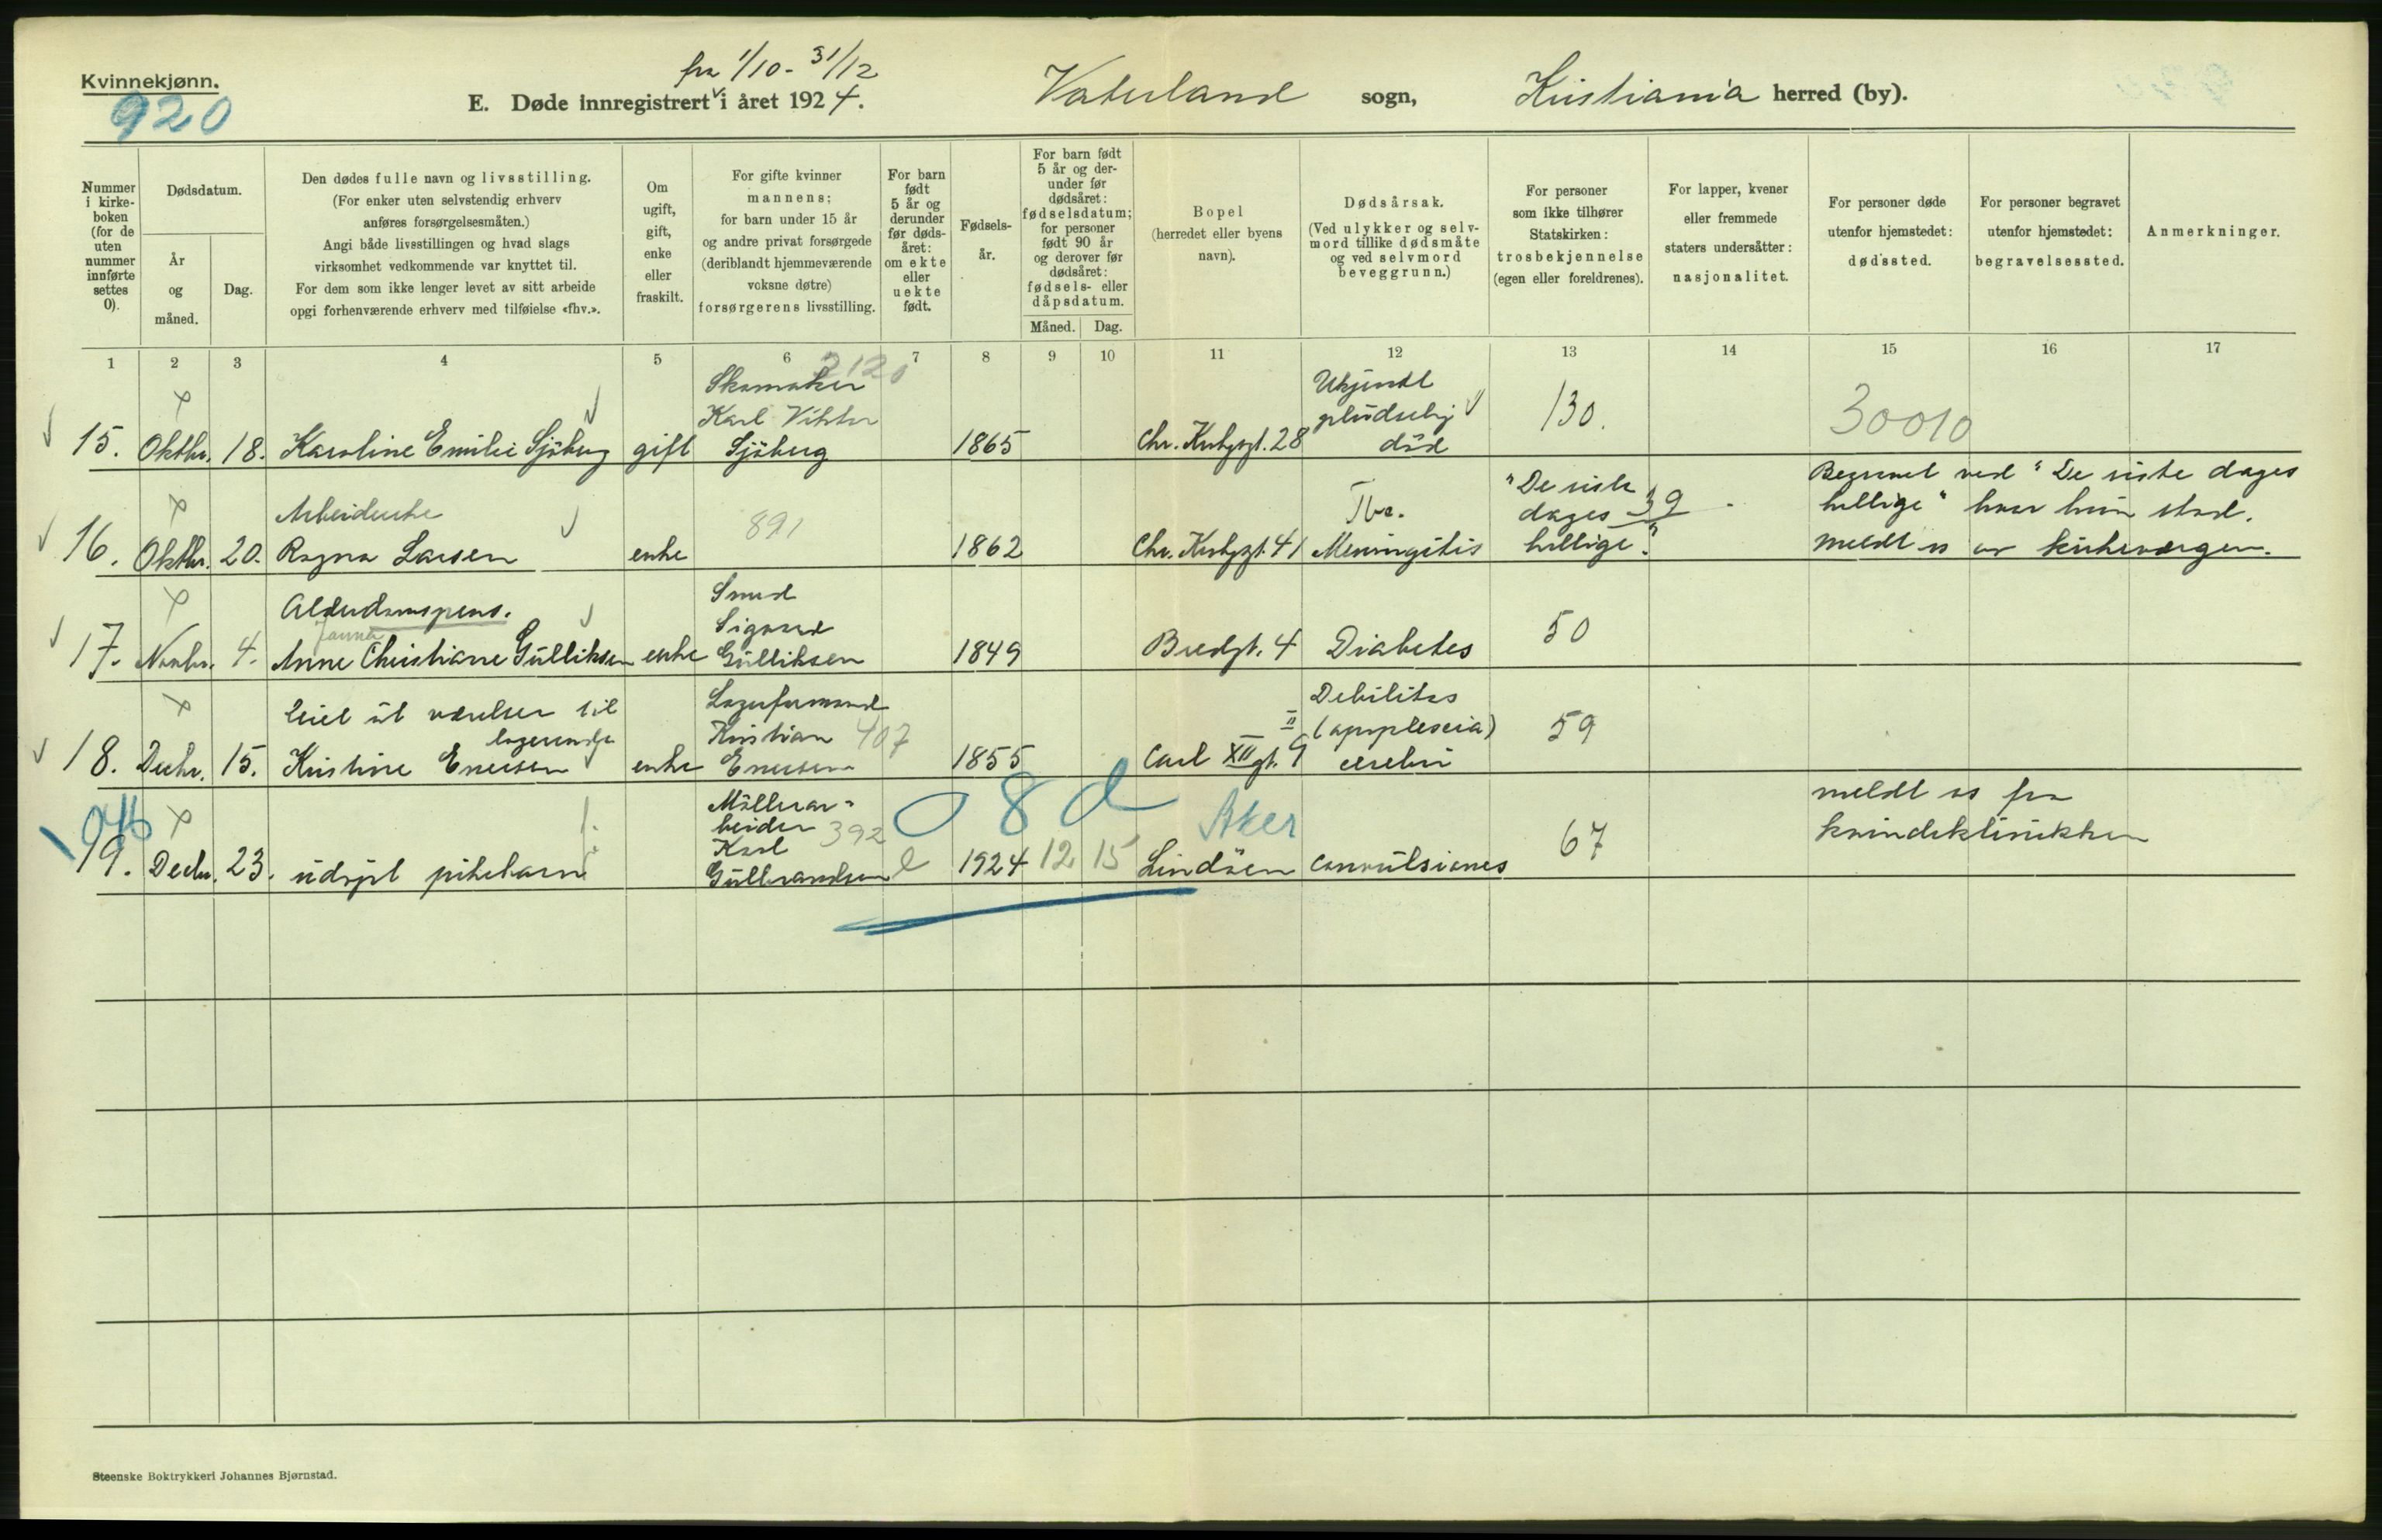 Kvinnekjønn.
920
fra 1/10 - 31/12
E. Døde innregistrert i året 1924.
Vaterland sogn, Kristiania herred (by).
Nummer i kirke-boken (for de uten nummer innførte settes 0).
Dødsdatum.
År og måned.
Dag.
Den dødes fulle navn og livsstilling.
(For enker uten selvstendig erhverv anføres forsørgelsesmåten.)
Angi både livsstillingen og hvad slags virksomhet vedkommende var knyttet til.
For dem som ikke lenger levet av sitt arbeide opgi forhenværende erhverv med tilføielse «fhv.».
Om ugift, gift, enke eller fraskilt.
For gifte kvinner mannens; for barn under 15 år og andre privat forsørgede (deriblandt hjemmeværende voksne døtre) forsørgerens livsstilling.
For barn født 5 år og derunder før døds-året: om ekte eller uekte født.
Fødsels-år.
For barn født 5 år og der-under før dødsåret: fødselsdatum; for personer født 90 år og derover før dødsåret: fødsels- eller dåpsdatum.
Måned. Dag.
Bopel (herredet eller byens navn).
Dødsårsak.
(Ved ulykker og selv-mord tillike dødsmåte og ved selvmord beveggrunn.)
For personer som ikke tilhører Statskirken: trosbekjennelse (egen eller foreldrenes).
For lapper, kvener eller fremmede staters undersåtter: nasjonalitet.
For personer døde utenfor hjemstedet: dødssted.
For personer begravet utenfor hjemstedet: begravelsessted.
Anmerkninger.
1 2 3 4 5 6 7 8 9 10 11 12 13 14 15 16 17
2120
Skomaker
Karl Viktor
Ukjendt
pludselig
130.
30010
15. Oktbr. 18. Karoline Emilie Sjöberg gift Sjöberg 1865 Chr. Krohgsgt. 28 död
Arbeiderske
891
Tbc.
"De siste
dages 39
Begravet ved "De siste dages
hellige" hvor hun stod.
16. Oktbr. 20. Ragna Larsen enke 1862 Chr. Krohgsgt. 41 Meningitis hellige". meldt os av kirkeværgen.
Alderdomspens.
Janna
Smed
Sigvard
50
17. Novbr. 4. Anne Christiane Gulliksen enke Gulliksen 1849 Bredgt. 4 Diabetes
leiet ut værelser til
logerende
Lagerformand
Kristian 407
Debilitas
(apoplexia)
59
18. Decbr. 15. Kristine Enersen enke Enersen 1855 Carl XII gt. 9 cerebri
Möllerar-
beider 392
Karl
0 8 d
Aker
67
meldt os fra
kvindeklinikken
19. Decbr. 23. udöpt pikebarn Gulbrandsen e 1924 12 15 Lindöen convulsiones
Steenske Boktrykkeri Johannes Bjørnstad.